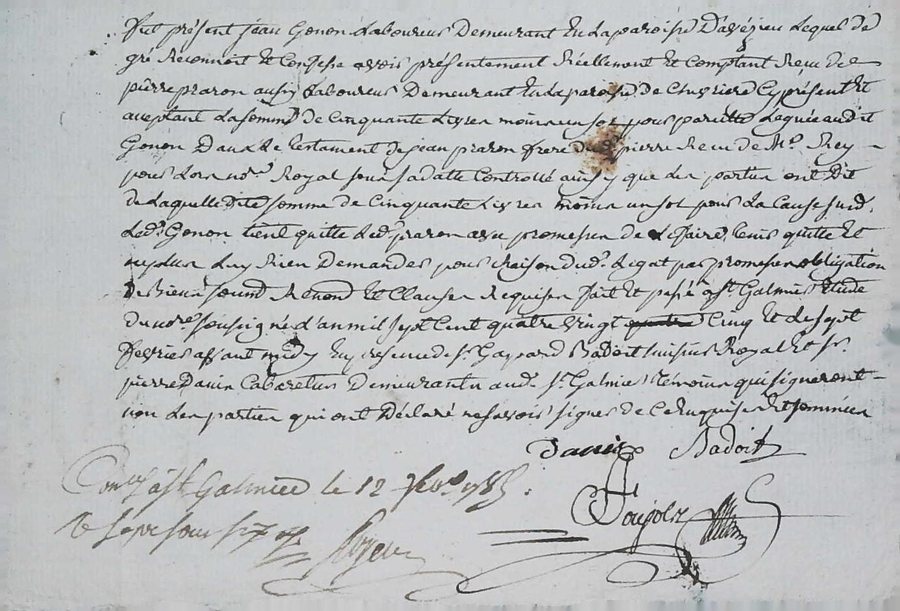 fut présent jean Gonon Laboureur Demeurant En La paroisse D'avézieu Lequel de
gré Reconnoit Et Confesse avoir présentement Réellement Et Comptant Receu de
pierre praron aussy Laboureur Demeurant En La paroisse de Chevriere Cy présent Et
aceptant La somme de Cinquante Livres moins un sol pour pareille Leguée aud it
Gonon Dans Le testament de jean praron frere dud. pierre Receu de Me. Rey
pour Lors nore. Royal sous sa datte Controllé aussy que Les parties ont Dit
de Laquelle dite somme de Cinquante Livres moins un sol pour La Cause susd.
Led. Gonon tient quitte Led. praron avec promesse de Le faire tenir quitte Et
ne plus Luy Rien Demander pour Raison dud. Legat par promesse obligation
de Biens soumd. Renond. Et Clauses Requises fait Et passé a st. Galmier Etude
du nore. soussigné L'an mil sept Cent quatre vingt Cinq Et Le sept
fevrier avant midy En présence de sr. Gaspard Badoit huissier Royal Et sr.
pierre Davin Cabaretier Demeurants aud. st. Galmier témoins qui signeront
non Les parties qui ont Déclaré ne savoir signer de Ce Enquises Et sommées
Badoit
a st. Galmier le 12